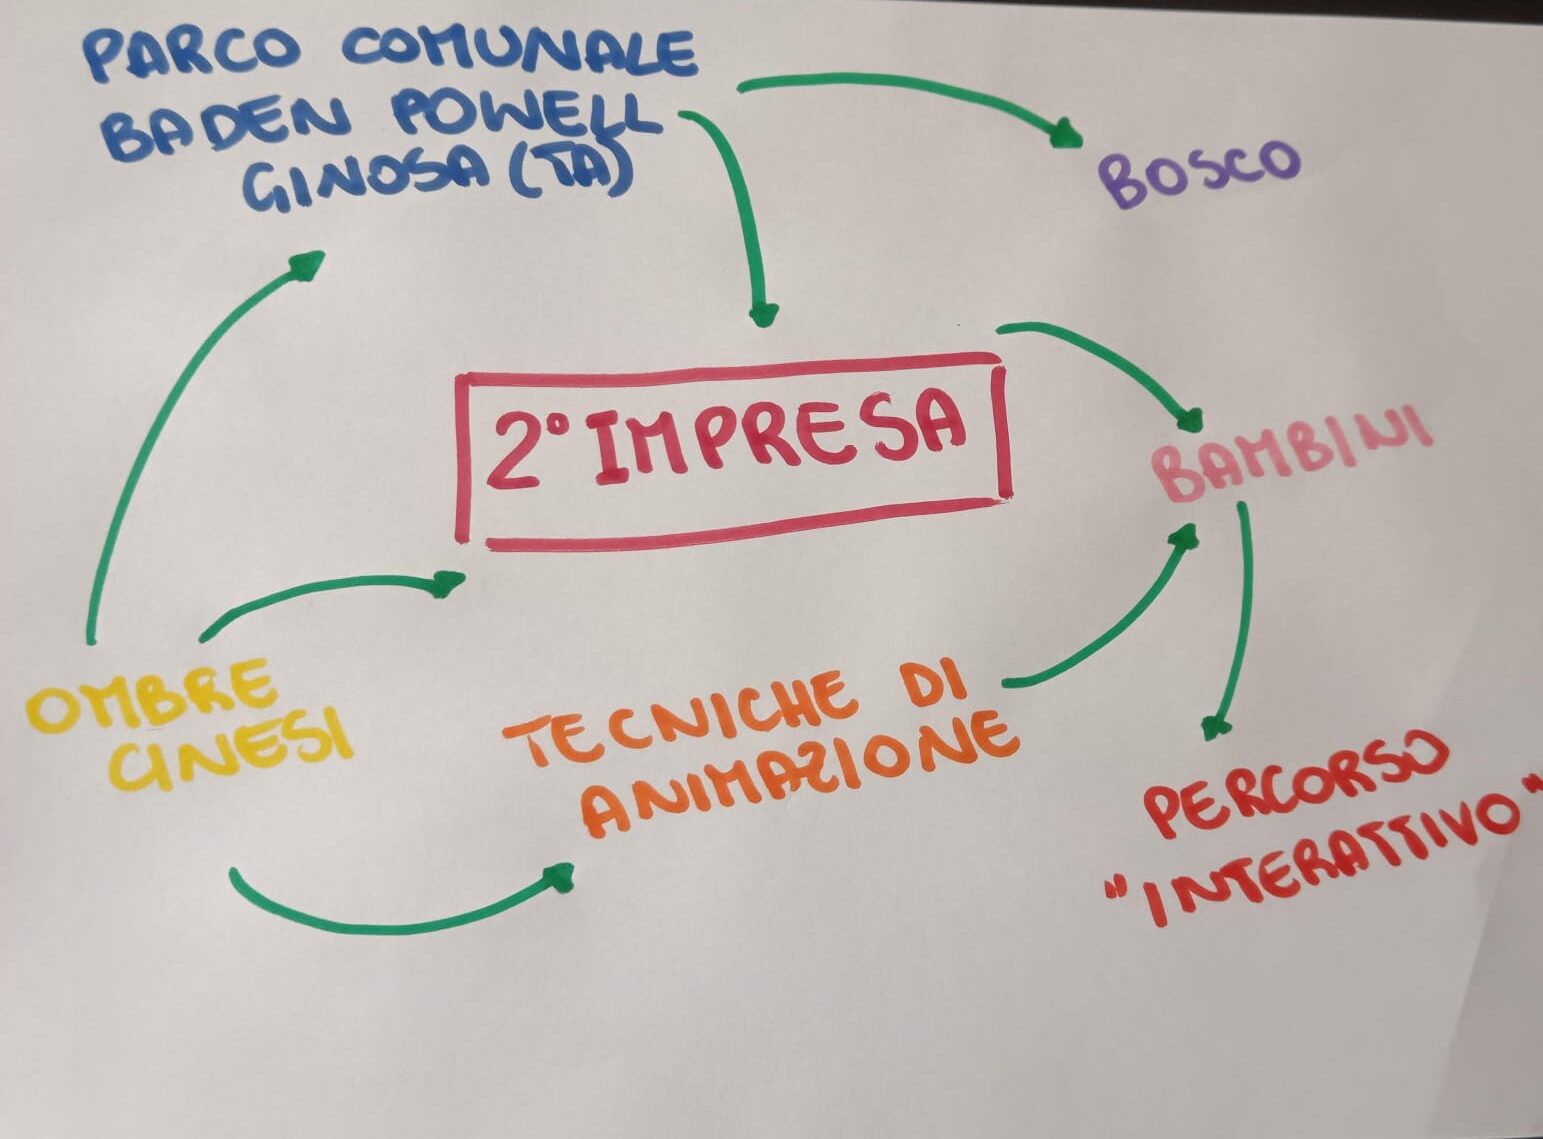 PARCO COMUNALE
BADEN POWELL
GINOSA (TA)
BOSCO
2° IMPRESA
BAMBINI
OMBRE
CINESI
TECNICHE DI
ANIMAZIONE
PERCORSO
"INTERATTIVO"